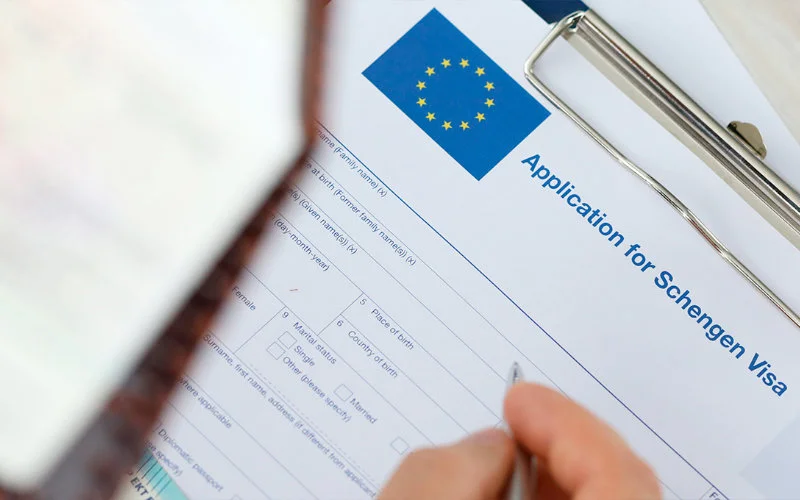 Application for Schengen Visa
name (Family name) (x)
at birth (Former family name(s)) (x)
(Given name(s)) (x)
(day-month-year)
5 Place of birth
6 Country of birth
Female
9 Marital status
Single
Married
Other (please specify)
Surname, first name, address (if different from applicant
where applicable
Diplomatic passport
specify)
EKT